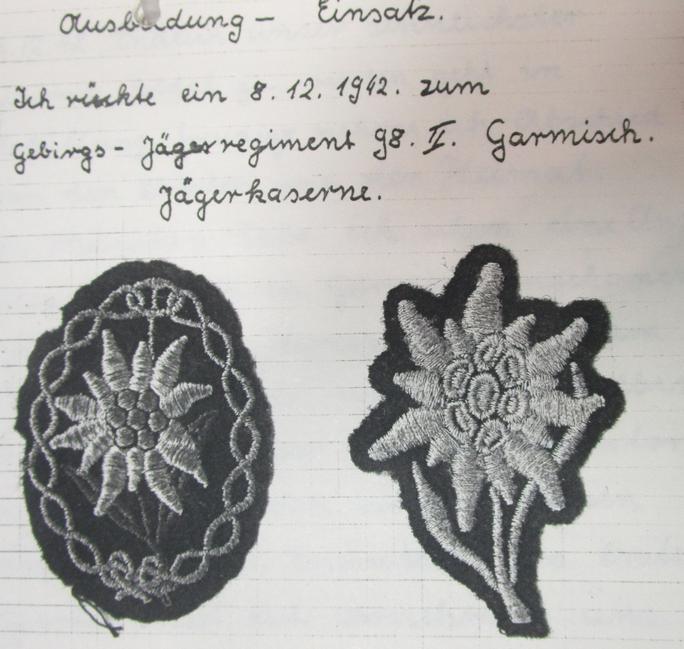 Ausbildung - Einsatz.
Ich rückte ein 8. 12. 1942. zum
Gebirgs - Jägerregiment 98. II. Garmisch.
Jägerkaserne.